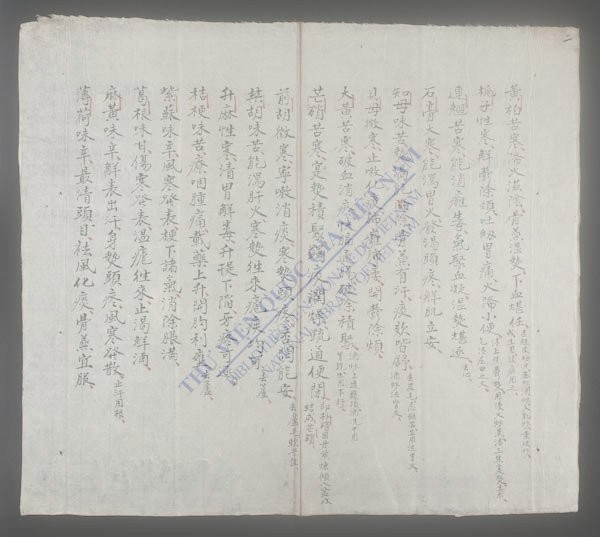 黃柏苦寒降火滋陰骨蒸湿熱下血堪任
梔子性寒解鬱除煩吐衂胃痛火降小便
連翹苦寒能消癰毒氣聚血凝湿熱堪逐 去心
石膏大寒能瀉胃火發渴頭疼解肌立安
知母味苦熱渴能除骨蒸有汗痰欬皆舒
貝母微寒止嗽化痰肺癰肺痿開鬱除煩
大黃苦寒破血消瘀快膈通腸破除積聚
芒硝苦寒實熱積聚蠲痰潤燥疏通便閉
前胡微寒寧嗽消痰寒熱頭疼痞悶能安 去蘆毛
柴胡味苦能瀉肝火寒熱往來瘧疾均可 去蘆
升麻性寒清胃解毒升提下陷牙疼可逐
桔梗味苦療咽腫痛載藥上升開胸利壅
紫蘇味辛風寒發表梗下諸氣消除脹滿
葛根味甘傷寒發表温瘧往來止渴解酒
麻黃味辛解表出汗身熱頭疼風寒發散 止汗用根
薄荷味辛最清頭目祛風化痰骨蒸宜服
THƯ VIỆN QUỐC GIA VIỆT NAM
BIBLIOTHÈQUE NATIONALE DU VIETNAM
NATIONAL LIBRARY OF VIETNAM